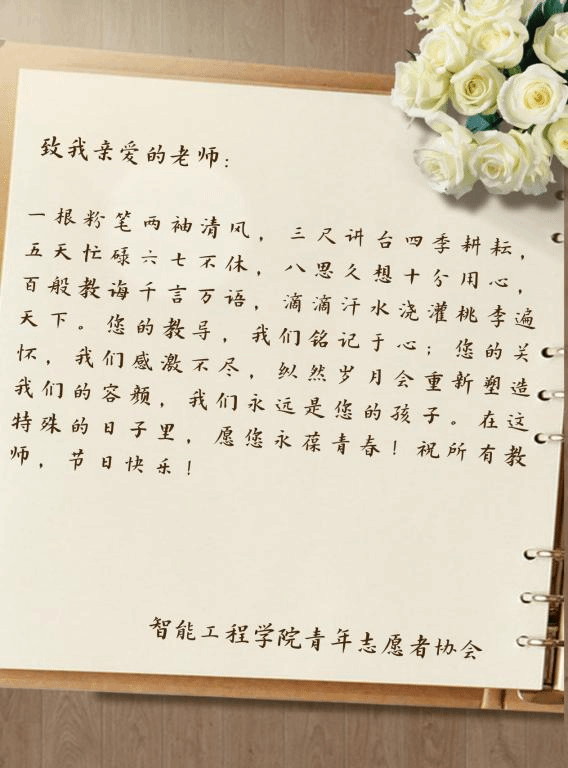 致我亲爱的老师：
一根粉笔两袖清风，三尺讲台四季耕耘，
五天忙碌六七不休，八思久想十分用心，
百般教诲千言万语，滴滴汗水浇灌桃李遍
天下。您的教导，我们铭记于心；您的关
怀，我们感激不尽，纵然岁月会重新塑造
我们的容颜，我们永远是您的孩子。在这
特殊的日子里，愿您永葆青春！祝所有教
师，节日快乐！
智能工程学院青年志愿者协会